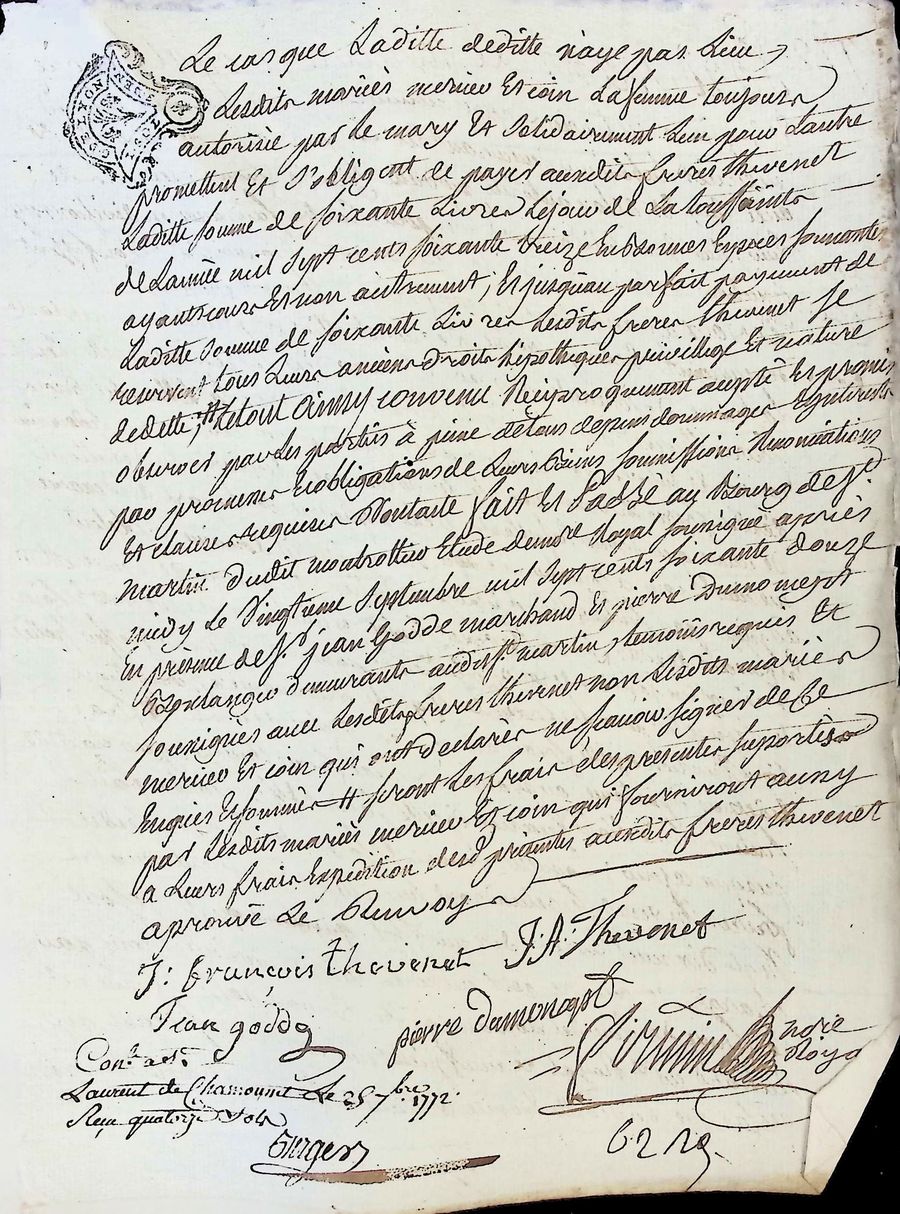 Le cas que Laditte deditte n'aye pas Lieu
Lesdits mariès merieu Et coin La femme toujours
autorisée par le mary Et Solidairement Lun pour Lautre
promettent Et S'obligent de payer auxdits freres thevenet
Laditte somme de soixante Livres Le jour de La toussaints
de Lannée mil Sept cents soixante treize En Espèces sonnantes
ayants cours Et non autrement, Et jusquau parfait payement de
Laditte Somme de soixante Livres Lesdits freres thevenet Se
reservent tous Leurs anciens Droits hipotheques privillege Et nature
dedette, # Le tout Ainsy convenu Reciproquement accepté Et promis
observer par Les partiës à peine de tous depens dommages Interests
par promesses Et obligations de Leurs Biens soumissions Renonciations
Et clauses requises Dont acte fait Et Passé au Bourg de St.
martin dudit montrottier Etude de nore. Royal soussigné après
midy Le Vingtieme Septembre mil Sept cents soixante douze
En présence de Sr. jean Godde marchand Et pierre Dumonceyst
Boulanger demeurants audit St. martin, temoins requis Et
soussignés avec Lesdits freres thevenet non Lesdits mariès
merieu Et coin qui ont Declarés ne scavoir signer de Ce
Enquis Et sommès # seront Les frais des presentes suportès
par Lesdits mariès merieu Et coin qui fourniront aussy
a Leurs frais Expedition desd. presentes auxdits freres thevenet
aprouvé Le Renvoy
J: françois thevenet J. A. Thevenet
Jean godde pierre dumoncept
nore Roya
Con.
Laurent de Chamousset Le 25 7bre 1772.
Reçu quatorze Sols